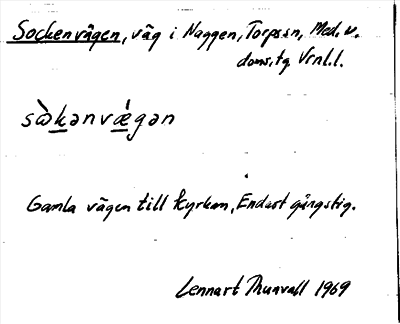 Sockenvägen, väg i Naggen, Torps sn, Med. v.
doms.tg Vrnl.l.
sɷ̀kənvǽgən
Gamla vägen till kyrkan, Endast gångstig.
Lennart Thunvall 1969